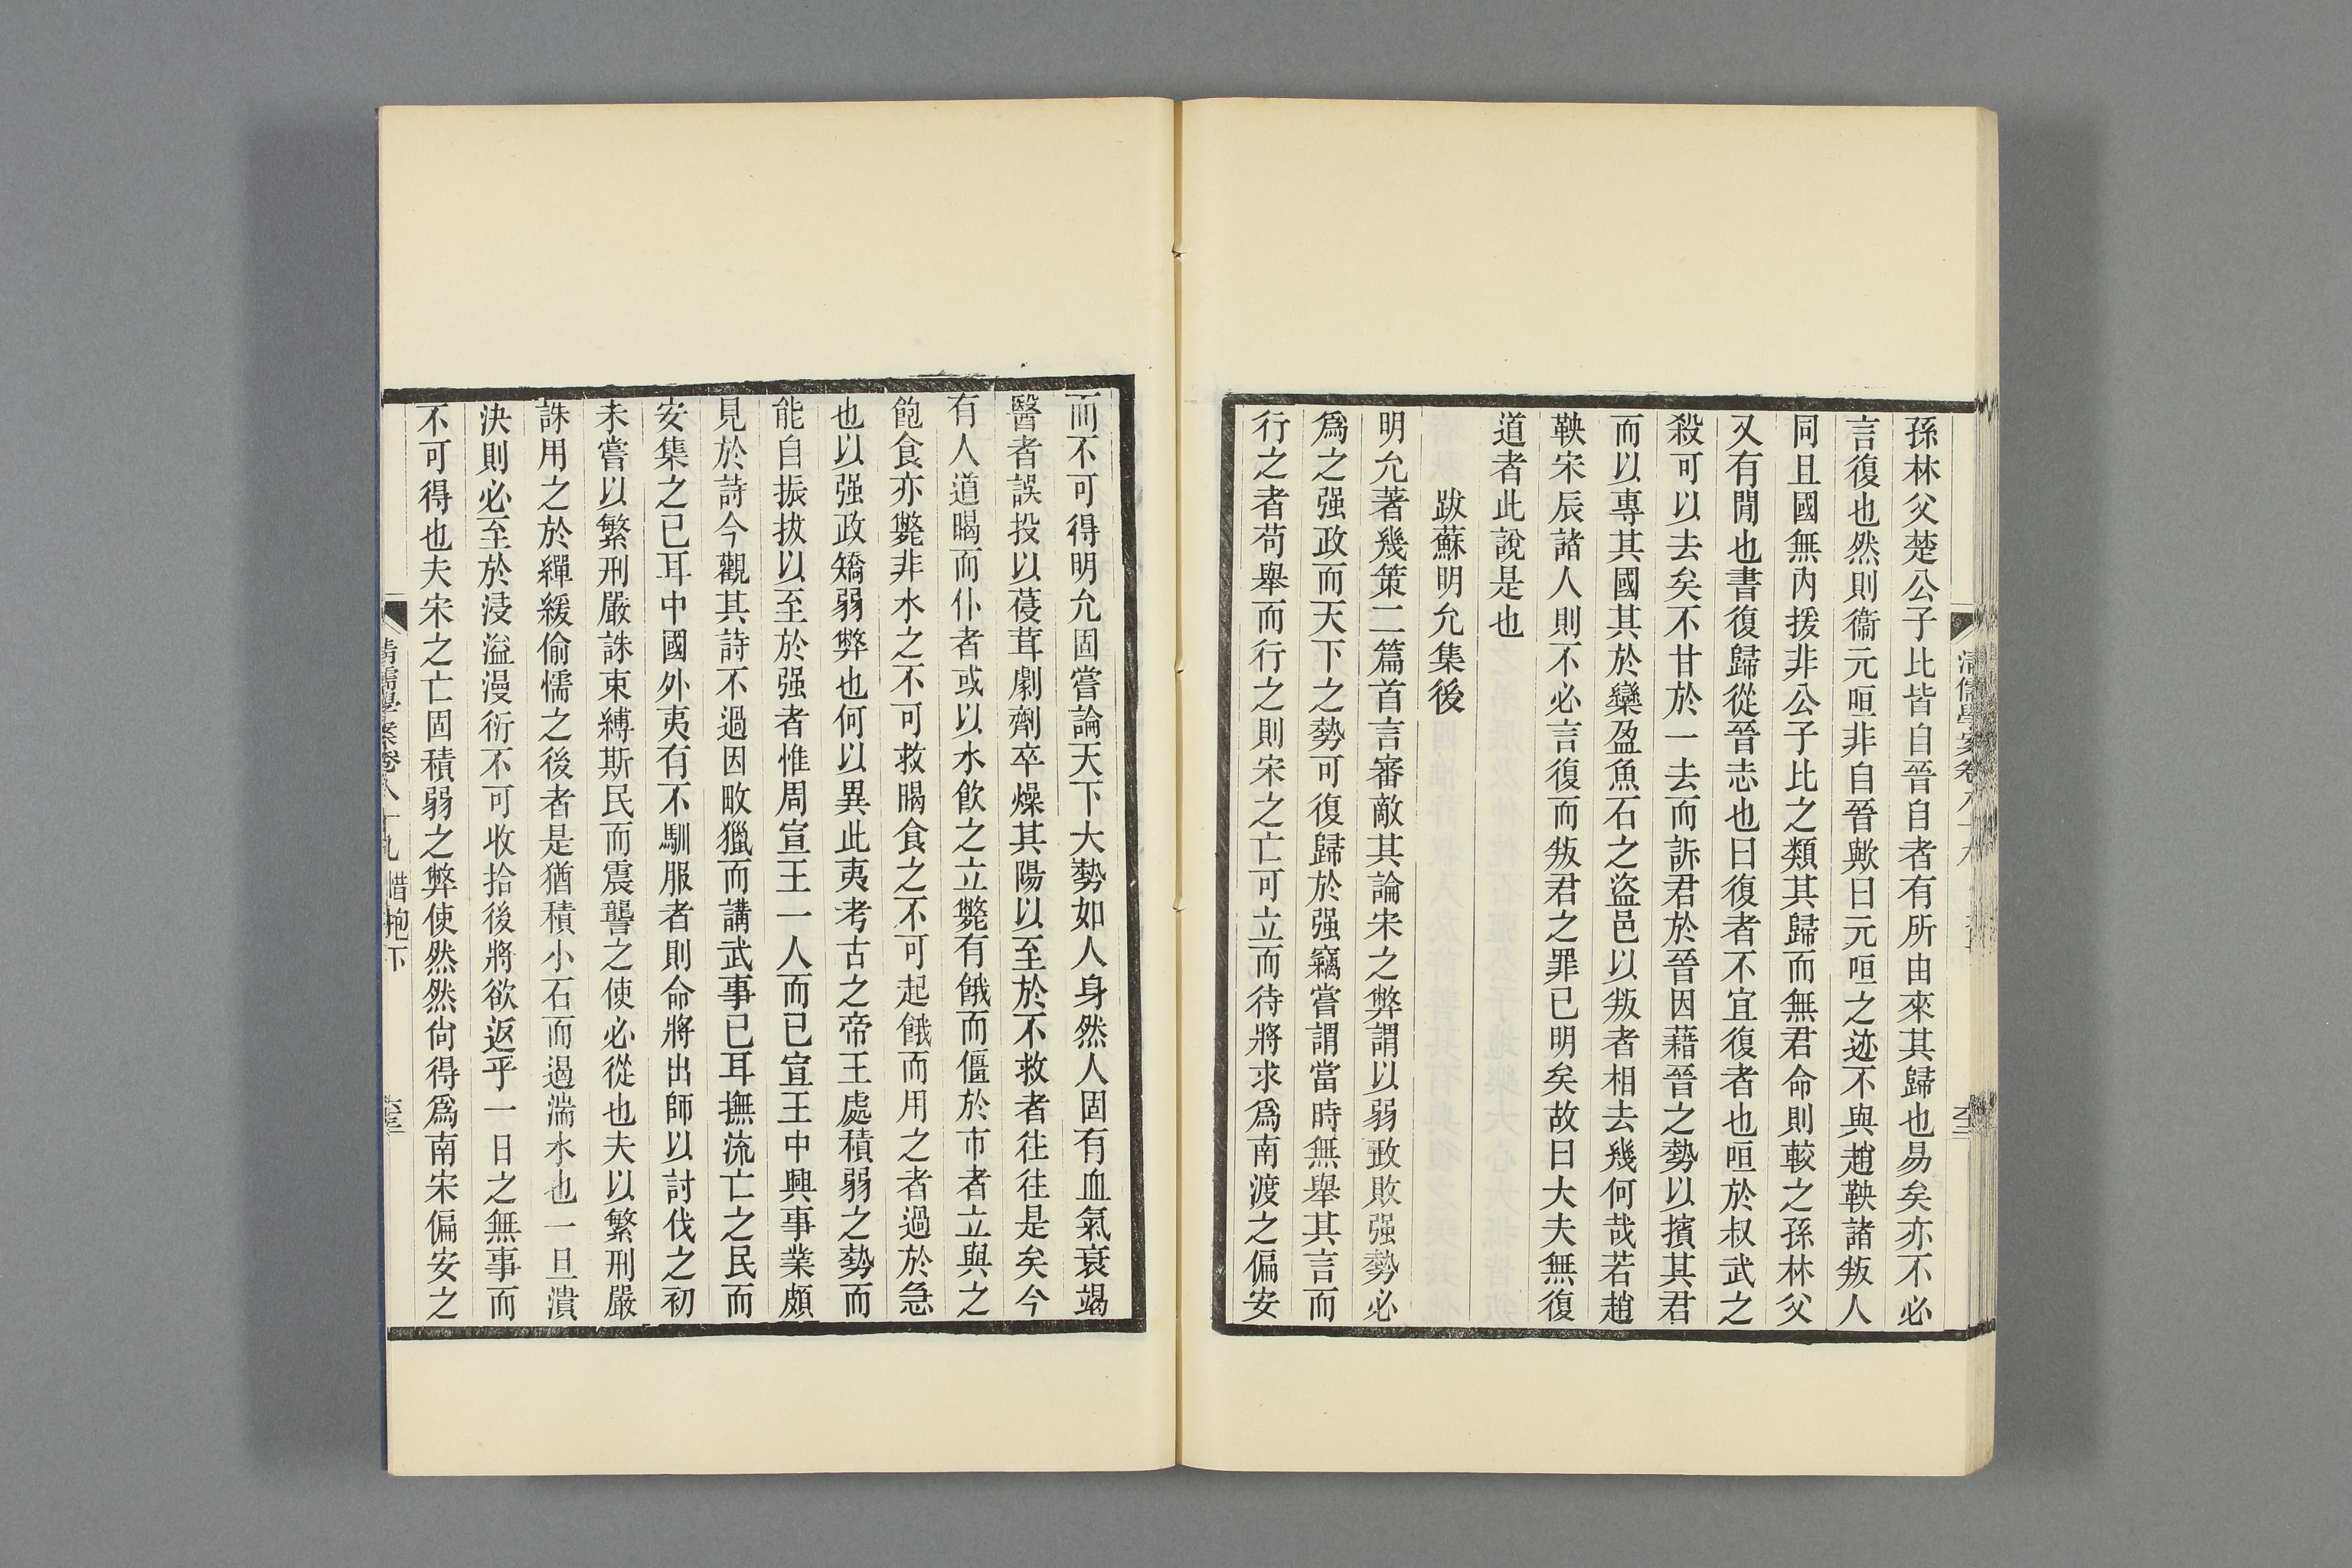 孫林父楚公子比皆自晉自者有所由來其歸也易矣亦不必
言復也然則衞元咺非自晉歟曰元咺之迹不與趙鞅諸叛人
同且國無內援非公子比之類其歸而無君命則較之孫林父
又有閒也書復歸從晉志也曰復者不宜復者也咺於叔武之
殺可以去矣不甘於一去而訴君於晉因藉晉之勢以擯其君
而以專其國其於欒盈魚石之盜邑以叛者相去幾何哉若趙
鞅宋辰諸人則不必言復而叛君之罪已明矣故曰大夫無復
道者此說是也
跋蘇明允集後
明允著幾策二篇首言審敵其論宋之弊謂以弱政敗强勢必
爲之强政而天下之勢可復歸於强竊嘗謂當時無舉其言而
行之者苟舉而行之則宋之亡可立而待將求爲南渡之偏安
而不可得明允固嘗論天下大勢如人身然人固有血氣衰竭
醫者誤投以葠茸劇劑卒燥其陽以至於不救者往往是矣今
有人道暍而仆者或以水飮之立斃有餓而僵於市者立與之
飽食亦斃非水之不可救暍食之不可起餓而用之者過於急
也以强政矯弱弊也何以異此夷考古之帝王處積弱之勢而
能自振拔以至於强者惟周宣王一人而已宣王中興事業頗
見於詩今觀其詩不過因畋獵而講武事已耳撫流亡之民而
安集之已耳中國外夷有不馴服者則命將出師以討伐之初
未嘗以繁刑嚴誅束縛斯民而震讋之使必從也夫以繁刑嚴
誅用之於縪緩偷懦之後者是猶積小石而遏湍水也一旦潰
決則必至於浸溢漫衍不可收拾後將欲返乎一日之無事而
不可得也夫宋之亡固積弱之弊使然然尙得爲南宋偏安之
清儒學案卷八十九 惜抱下